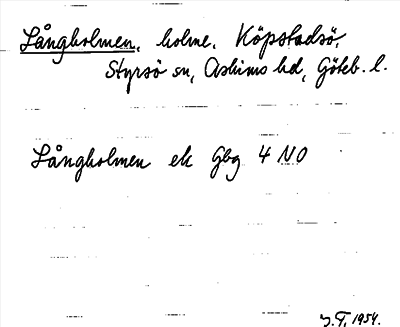 Långholmen, holme, Köpstadsö,
Styrsö sn, Askims hd, Göteb. l.
Långholmen ek Gbg 4 NO
1954.